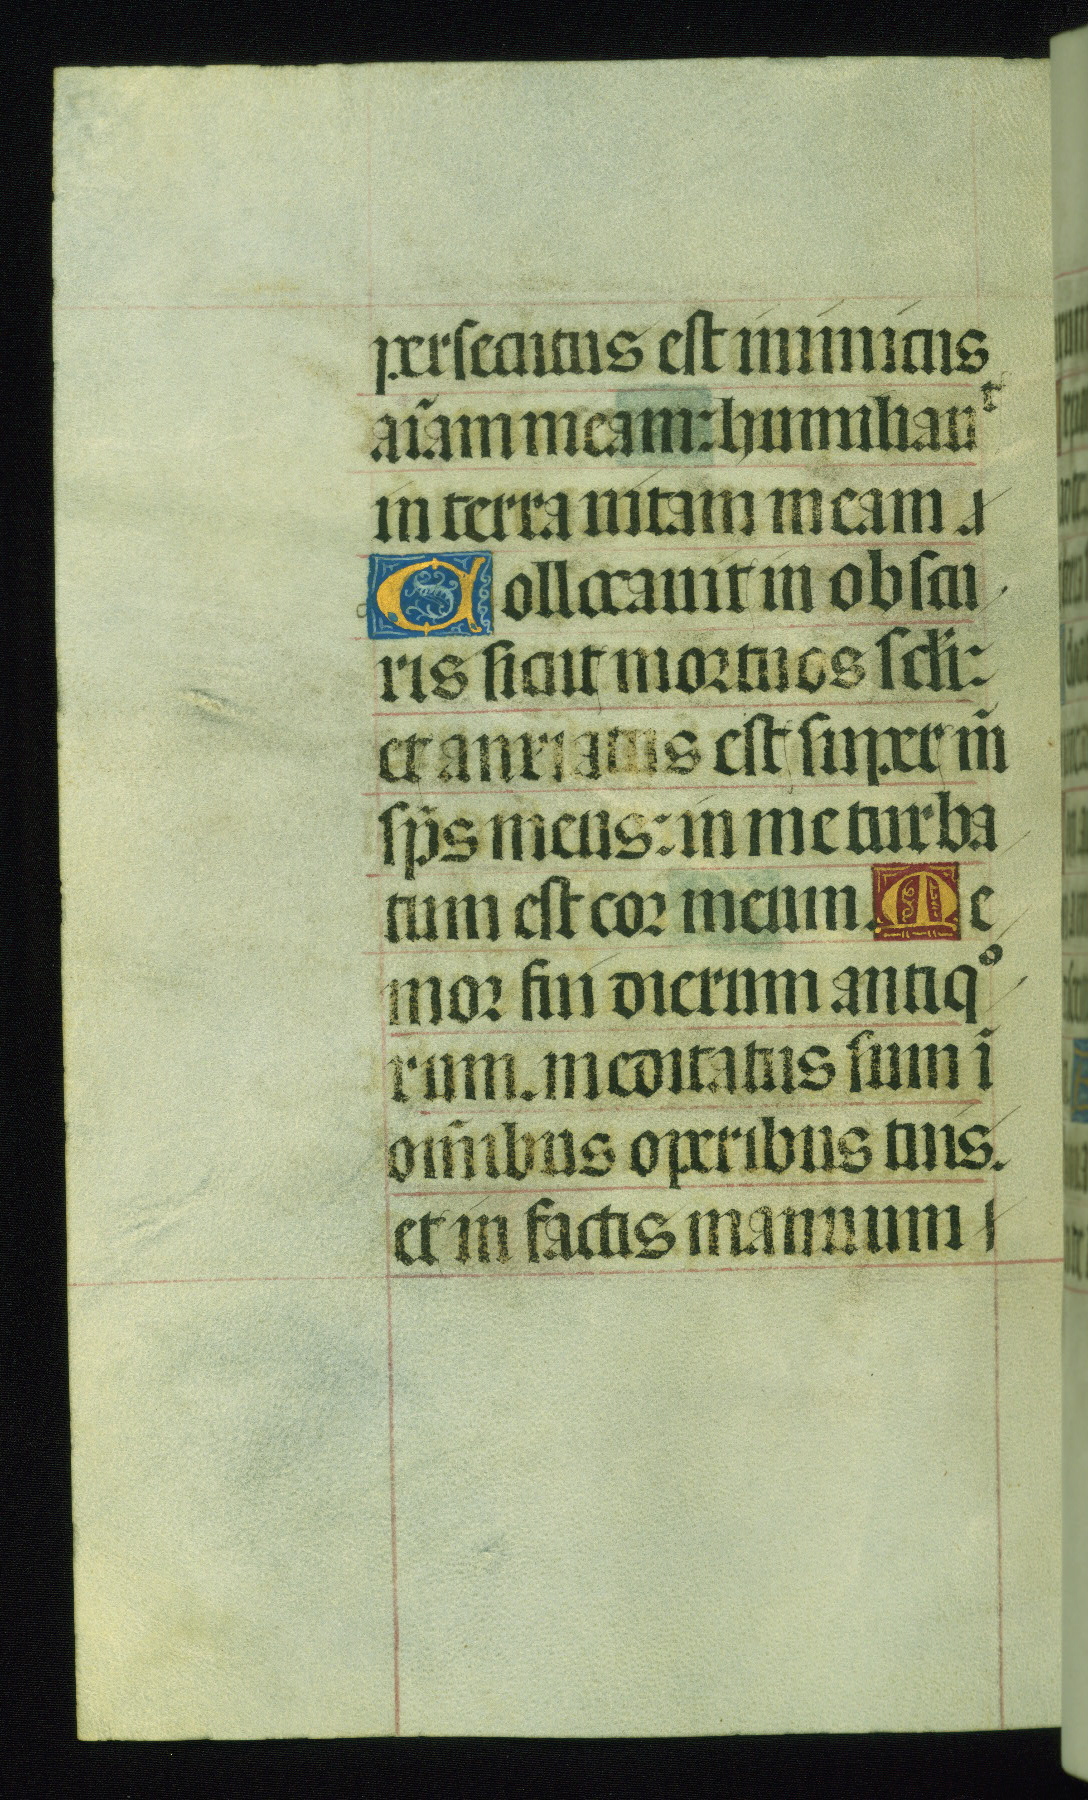 persecutus est inimicus
aīam meam: humiliauᵗ
in terra uitam meam
Collocauit in obscu
ris sicut mortuos scl̄i:
et anxiatus est super m̄
sp̄s meus: in me turba
tum est cor meum. Me
mor fui dierum antiqᵒ
rum. meditatus sum ī
om̄ibus operibus tuis.
et in factis manuum